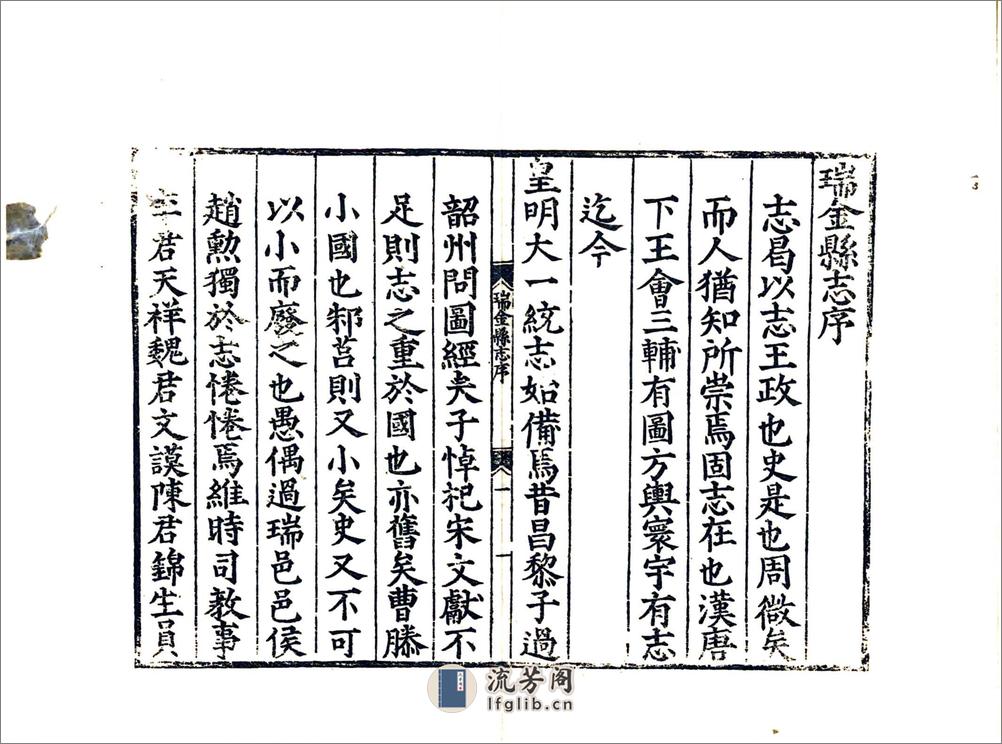 瑞金縣志序
志曷以志王政也史是也周微矣
而人猶知所崇焉固志在也漢唐
下王會三輔有圖方輿寰宇有志
迄今
皇明大一統志始備焉昔昌黎子過
瑞金縣志序
一
一
韶州問圖經矣子悼杞宋文獻不
足則志之重於國也亦舊矣曹滕
小國也邾莒則又小矣史又不可
以小而廢之也愚偶過瑞邑邑侯
趙勲獨於志惓惓焉維時司教事
李君天祥魏君文謨陳君錦生員
流芳阁
lfglib.cn